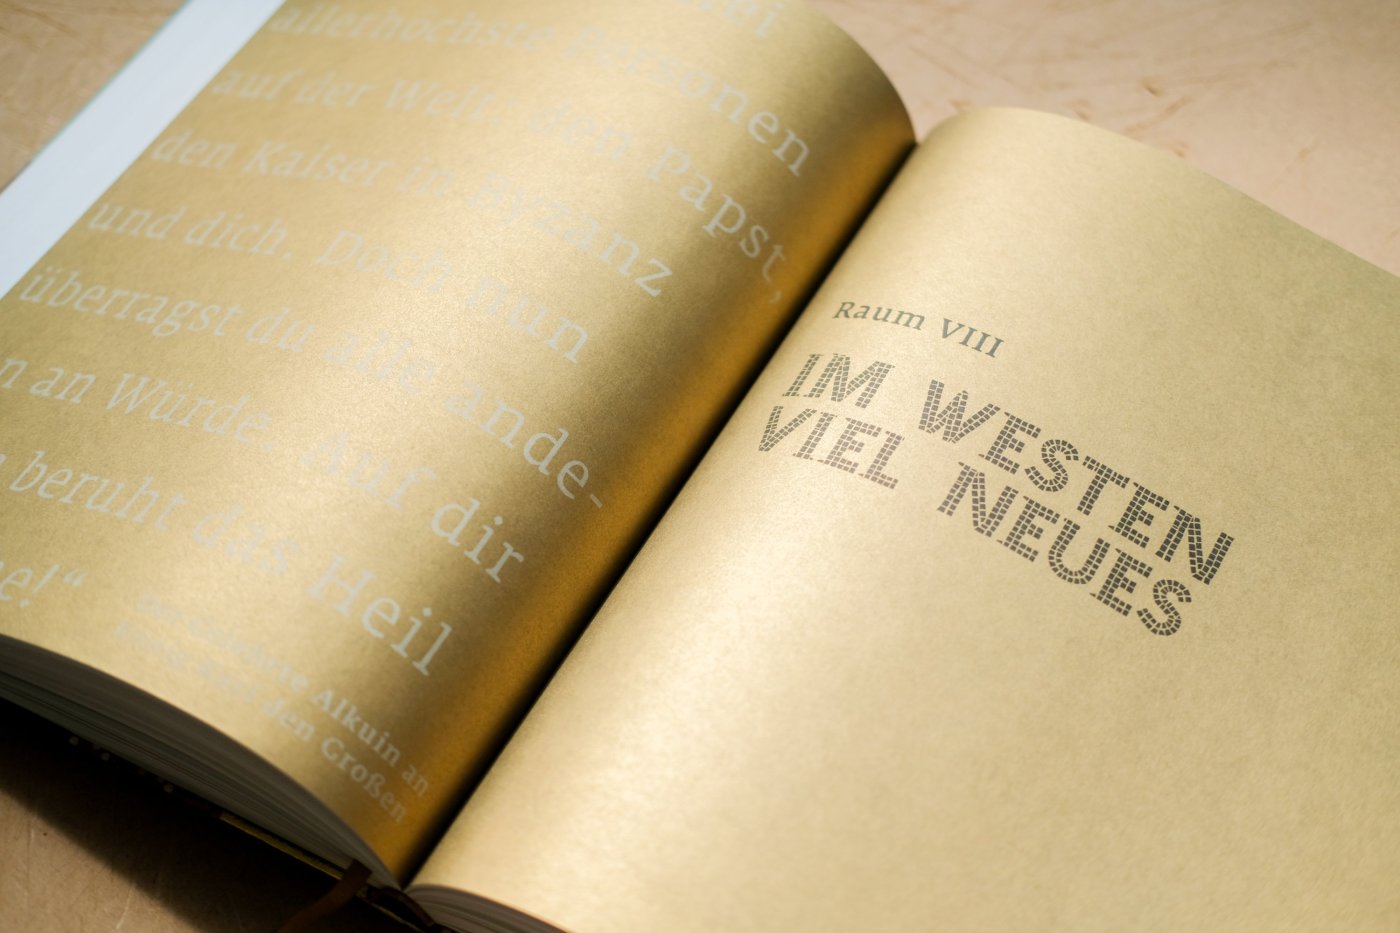 allerhöchste Personen
auf der Welt: den Papst,
den Kaiser in Byzanz
und dich. Doch nun
überragst du alle ande-
n an Würde. Auf dir
beruht das Heil
e!“
Der Gelehrte Alkuin an
König Karl den Großen
Raum VIII
IM WESTEN
VIEL NEUES